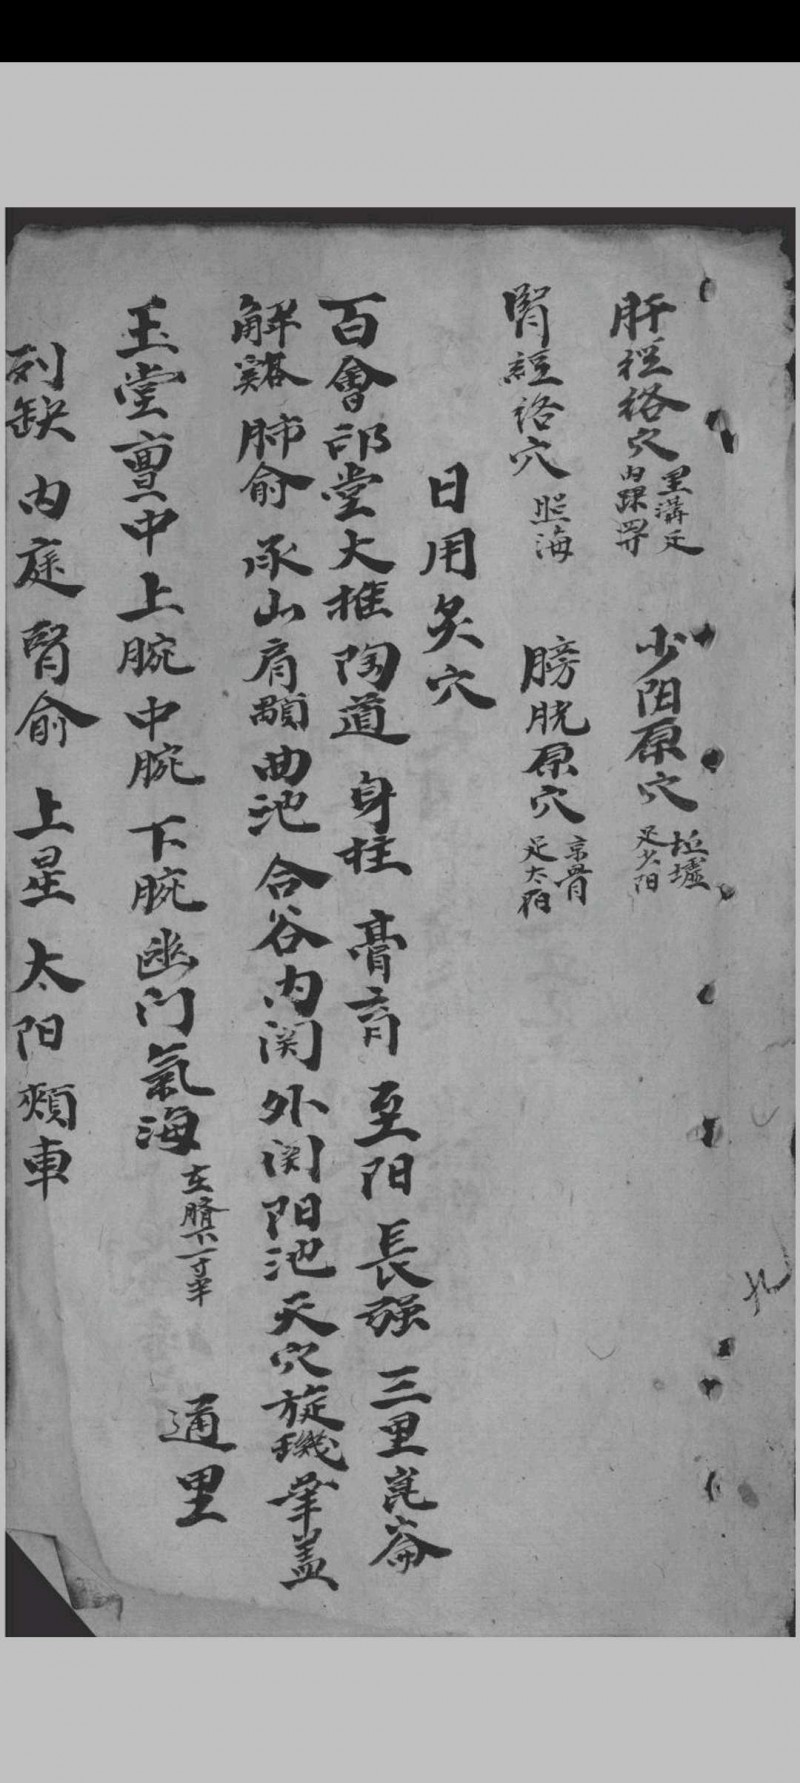 肝経絡穴 里溝足内踝前 少阳原穴 坵墟足少阳
腎經絡穴 照海 膀胱原穴 京骨足太阳
日用炙穴
百會印堂大椎陶道身柱膏肓至阳長强三里崑崙
解谿肺俞承山肩顒曲池合谷内関外関阳池天穴旋璣華盖
玉堂亶中上腕中腕下腕幽门氣海 在臍下一寸半 通里
列缺内庭腎俞上星太阳頰車